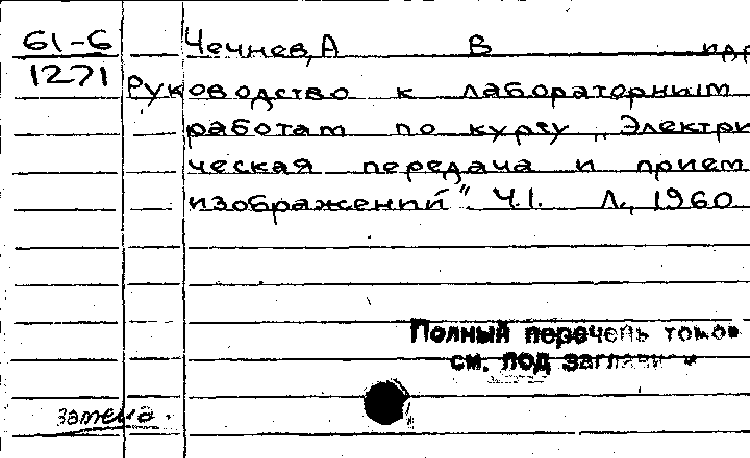 61-6 Чечнев, А В и др
1271 Руководство к лабораторным
работам по курсу „Электри
ческая передача и прием
изображений". Ч.1. Л., 1960
Полный перечень томов
см. под заглавием
замена.